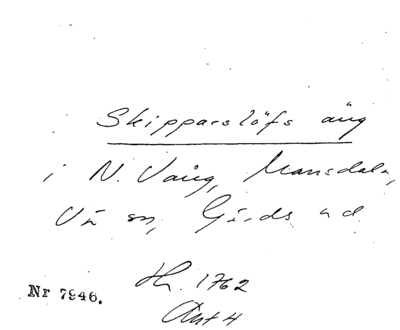 Skipparslöfs äng
i N. Vång, Mansdala,
Vä sn, Gärds hd
Hr. 1762
Nr 7946.
Akt 4